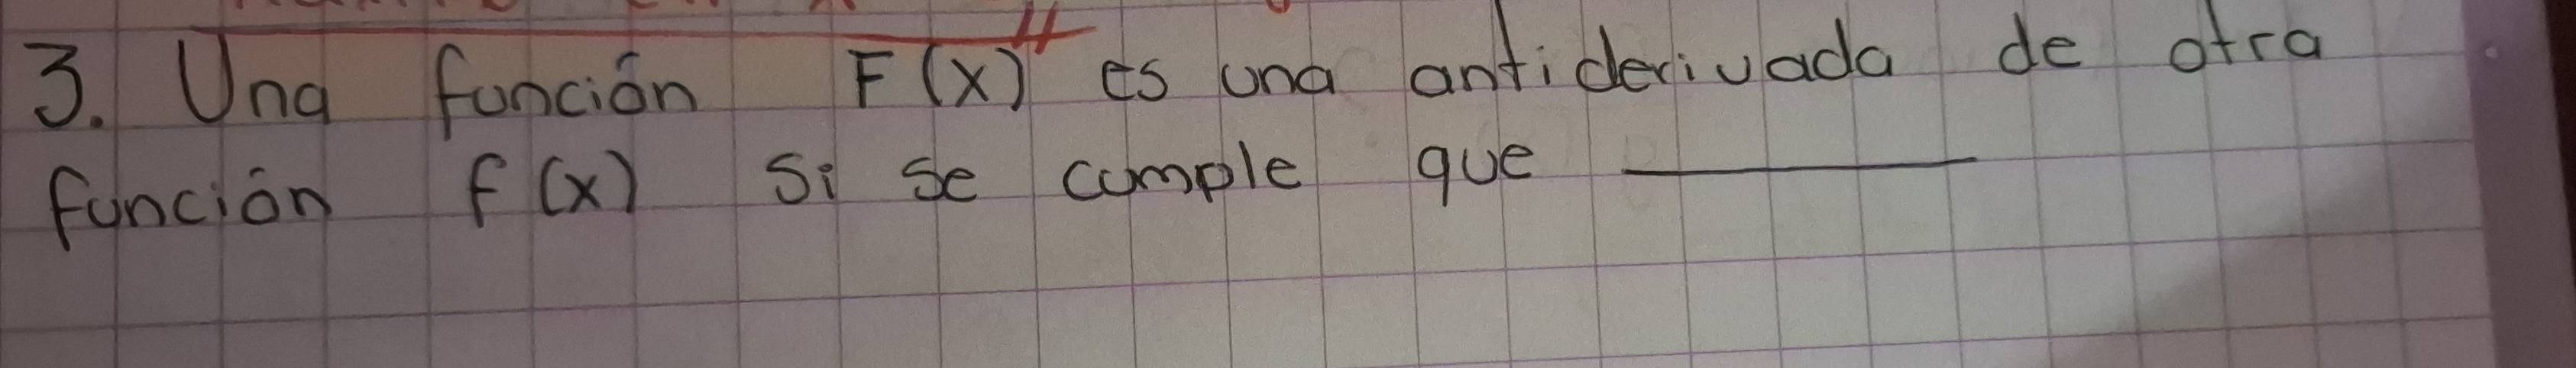 3. Una función F(x) es una antiderivada de otra
función f(x) si se cumple que ______